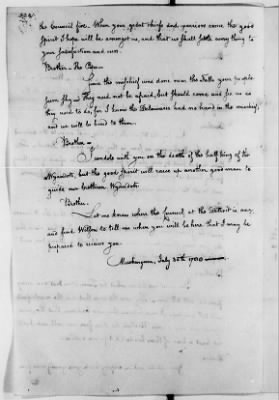 the Council fire. When your great chiefs and warriors come the good
Spirit I hope will be amongst us, and that we shall settle every thing to
your Satisfaction and ours.
Brother. The Pipe—
Since the mischief was done near the Falls your people
seem shy. They need not be afraid, but should come and see me as
they used to do, for I know the Delawares had no hand in the murder,
and we will be kind to them.
Brother—
I condole with you on the death of the half king of the
Wyandots, but the good Spirit will raise up another good man to
guide our brethren Wyandots.
Brother.
Let me know where the Council, at the Detroit is over,
and send Wilson to tell me when you will be here that I may be
prepared to receive you.
Muskingum, July 20th 1788